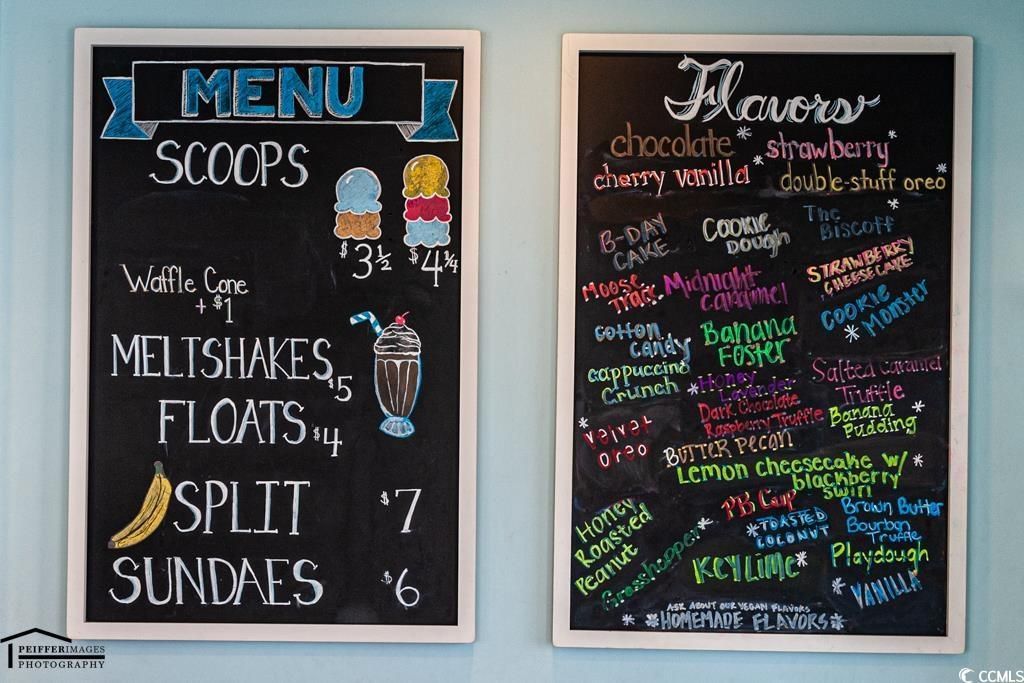 MENU
SCOOPS
$3 1/2
$4 1/4
Waffle Cone
+ $1
MELTSHAKES $5
FLOATS $4
SPLIT $7
SUNDAES $6
Flavors
chocolate * strawberry *
cherry vanilla * double-stuff oreo *
B-DAY
CAKE
COOKIE
DOUGH
The *
BISCOFF
MOOSE
TRACK
Midnight
caramel
STRAWBERRY
CHEESECAKE
COOKIE
MONSTER *
Cotton
Candy
Banana
FOSTER
cappuccino
Crunch *
Honey
Lavender
Salted Caramel
Truffle
* Velvet
Oreo
Dark Chocolate
Raspberry Truffle
Banana *
Pudding
BUTTER PECAN
Lemon cheesecake w/ *
blackberry
swirl
Honey
Roasted
Peanut
PB CUP
* TOASTED
COCONUT
Brown Butter
Bourbon
Truffle
Grasshopper *
KEY LIME *
Playdough
* VANILLA
ASK ABOUT OUR VEGAN FLAVORS
* *HOMEMADE FLAVORS*
PEIFFERIMAGES
PHOTOGRAPHY
CCMLS